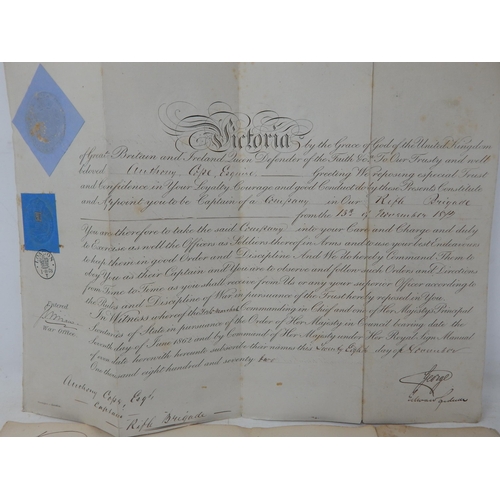 Victoria by the Grace of God of the United Kingdom
of Great Britain and Ireland Queen Defender of the Faith &c. To Our Trusty and well
beloved Anthony Cope Esquire Greeting We reposing especial Trust
and Confidence in Your Loyalty Courage and good Conduct do by these Presents Constitute
and Appoint you to be Captain of a Company in Our Rifle Brigade
from the 13th of November 1872
You are therefore to take the said Company into your Care and Charge and duly
to Exercise as well the Officers as Soldiers thereof in Arms and to use your best Endeavours
to keep them in good Order and Discipline And We do hereby Command Them to
Obey You as their Captain and You are to observe and follow such Orders and Directions
from Time to Time as you shall receive from Us or any your superior Officer according to
the Rules and Discipline of War in pursuance of the Trust hereby reposed in You.
In Witness whereof the Field Marshal Commanding in Chief and one of Her Majesty's Principal
Secretaries of State in pursuance of the Order of Her Majesty in Council bearing date the
Seventh day of June 1862 and by Command of Her Majesty under Her Royal Sign Manual
of even date herewith hereunto subscribe their names this Twenty Eighth day of November
One thousand eight hundred and seventy two
Entered
War Office
George
Anthony Cope, Esqre
Captain
Rifle Brigade